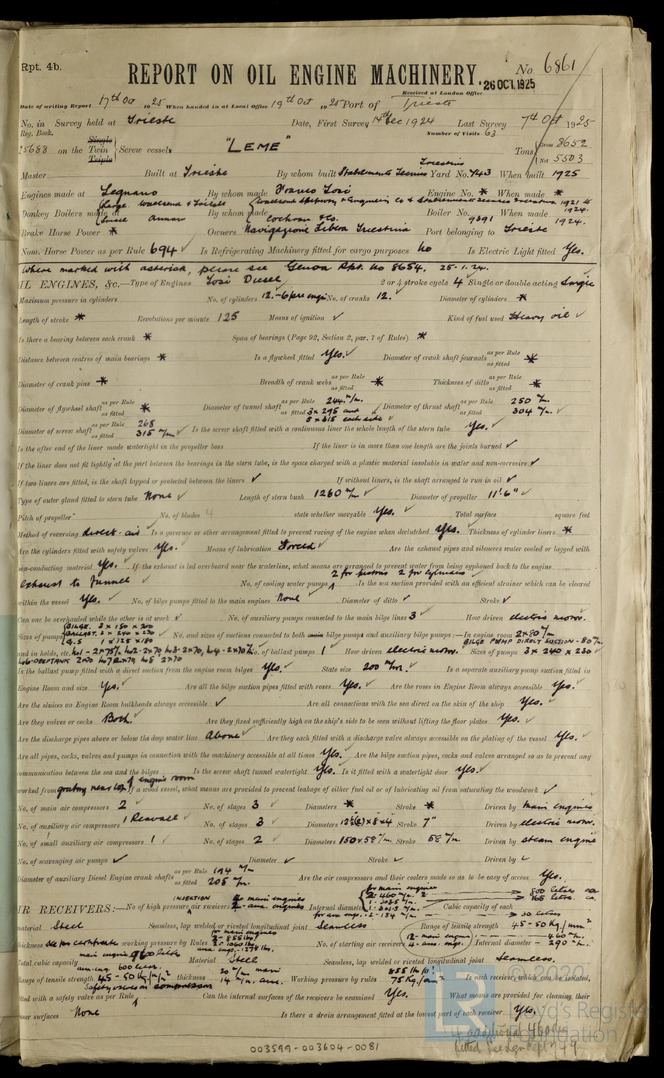 Rpt. 4b.
REPORT ON OIL ENGINE MACHINERY.
No. 6861
Received at London Office 26 OCT 1925
Date of writing Report 17th Oct 1925 When handed in at Local Office 19th Oct 1925 Port of Trieste
No. in Survey held at Trieste Date, First Survey Dec 1924 Last Survey 7th Oct 1925
Reg. Book. Number of Visits 63
25688 on the Single Twin Triple Screw vessels "LEME" Tons Gross 8652 Net 5503
Master Built at Trieste By whom built Stabilimento Tecnico Triestino Yard No. 743 When built 1925
Engines made at Legnano By whom made Franco Tosi Engine No. * When made *
Donkey Boilers made at Annan By whom made Cochran & Co. Boiler No. 9891 When made 1924.
Brake Horse Power * Owners Navigazione Libera Triestina Port belonging to Trieste
Nom. Horse Power as per Rule 694 Is Refrigerating Machinery fitted for cargo purposes No Is Electric Light fitted Yes.
Where marked with asterisk, please see Genoa Rpt. No 8654. 25-1-24.
OIL ENGINES, &c.—Type of Engines Tosi Diesel 2 or 4 stroke cycle 4 Single or double acting Single
Maximum pressure in cylinders No. of cylinders 12.-6 per engine No. of cranks 12. Diameter of cylinders *
Length of stroke * Revolutions per minute 125 Means of ignition Kind of fuel used Heavy oil
Is there a bearing between each crank * Span of bearings (Page 92, Section 2, par. 7 of Rules) *
Distance between centres of main bearings * Is a flywheel fitted Yes. Diameter of crank shaft journals as per Rule as fitted *
Diameter of crank pins * Breadth of crank webs as per Rule as fitted * Thickness of ditto as per Rule as fitted *
Diameter of flywheel shaft as per Rule as fitted * Diameter of tunnel shaft as per Rule 244 m/m. as fitted 3 x 295 and 8 x 315 each side Diameter of thrust shaft as per Rule 250 m/m. as fitted 304 m/m.
Diameter of screw shaft as per Rule 268 as fitted 315 m/m Is the screw shaft fitted with a continuous liner the whole length of the stern tube Yes.
Is the after end of the liner made watertight in the propeller boss If the liner is in more than one length are the joints burned
If the liner does not fit tightly at the part between the bearings in the stern tube, is the space charged with a plastic material insoluble in water and non-corrosive
If two liners are fitted, is the shaft lapped or protected between the liners If without liners, is the shaft arranged to run in oil
Type of outer gland fitted to stern tube None Length of stern bush 1260 m/m Diameter of propeller 11'.6"
Pitch of propeller No. of blades 4 state whether moveable Yes. Total surface square feet
Method of reversing direct-air Is a governor or other arrangement fitted to prevent racing of the engine when declutched Yes. Thickness of cylinder liners *
Are the cylinders fitted with safety valves Yes. Means of lubrication Forced Are the exhaust pipes and silencers water cooled or lagged with
non-conducting material Yes. If the exhaust is led overboard near the waterline, what means are arranged to prevent water from being syphoned back to the engine
Exhaust to funnel No. of cooling water pumps 2 for pistons 2 for cylinders Is the sea suction provided with an efficient strainer which can be cleared
within the vessel Yes. No. of bilge pumps fitted to the main engines None Diameter of ditto Stroke
Can one be overhauled while the other is at work No. of auxiliary pumps connected to the main bilge lines 3 How driven electric motor.
Sizes of pumps BILGE. 3 x 150 x 200 BALLAST. 3 x 240 x 230 No. and sizes of suctions connected to both main bilge pumps and auxiliary bilge pumps:—In engine room 2 x 80 m/m BILGE PUMP DIRECT SUCTION - 80 m/m.
and in holds, etc. No. of ballast pumps 1 How driven electric motor. Sizes of pumps 3 x 240 x 230
Is the ballast pump fitted with a direct suction from the engine room bilges Yes. State size 200 m/m. Is a separate auxiliary pump suction fitted in
Engine Room and size Yes. Are all the bilge suction pipes fitted with roses Yes. Are the roses in Engine Room always accessible Yes.
Are the sluices on Engine Room bulkheads always accessible Are all connections with the sea direct on the skin of the ship Yes.
Are they valves or cocks Both Are they fixed sufficiently high on the ship's side to be seen without lifting the floor plates Yes.
Are the discharge pipes above or below the deep water line Above Are they each fitted with a discharge valve always accessible on the plating of the vessel Yes.
Are all pipes, cocks, valves and pumps in connection with the machinery accessible at all times Yes. Are the bilge suction pipes, cocks and valves arranged so as to prevent any
communication between the sea and the bilges Is the screw shaft tunnel watertight Yes. Is it fitted with a watertight door Yes.
worked from grating near top of engine room If a wood vessel, what means are provided to prevent leakage of either fuel oil or of lubricating oil from saturating the woodwork
No. of main air compressors 2 No. of stages 3 Diameters * Stroke * Driven by main engines
No. of auxiliary air compressors 1 Reavell No. of stages 3 Stroke 7" Driven by electric motor.
No. of small auxiliary air compressors 1 No. of stages 2 Driven by steam engine
No. of scavenging air pumps Diameter Stroke Driven by
Diameter of auxiliary Diesel Engine crank shafts as per Rule 194 m/m as fitted 205 m/m. Are the air compressors and their coolers made so as to be easy of access Yes.
AIR RECEIVERS:—No. of high pressure INJECTION air receivers Internal diameter Cubic capacity of each
material Steel Seamless, lap welded or riveted longitudinal joint Seamless Range of tensile strength 45-50 kg/mm²
thickness See for certificate working pressure by Rules No. of starting air receivers Internal diameter
Total cubic capacity Material Steel Seamless, lap welded or riveted longitudinal joint Seamless.
Range of tensile strength 45-50 kg/m/m² thickness Working pressure by rules 855 lbs 75 Kg/cm² Is each receiver, which can be isolated,
fitted with a safety valve as per Rule Can the internal surfaces of the receivers be examined Yes. What means are provided for cleaning their
inner surfaces None Is there a drain arrangement fitted at the lowest part of each receiver Yes.
© 2020
Lloyd's Register
Foundation
003599-003604-0081